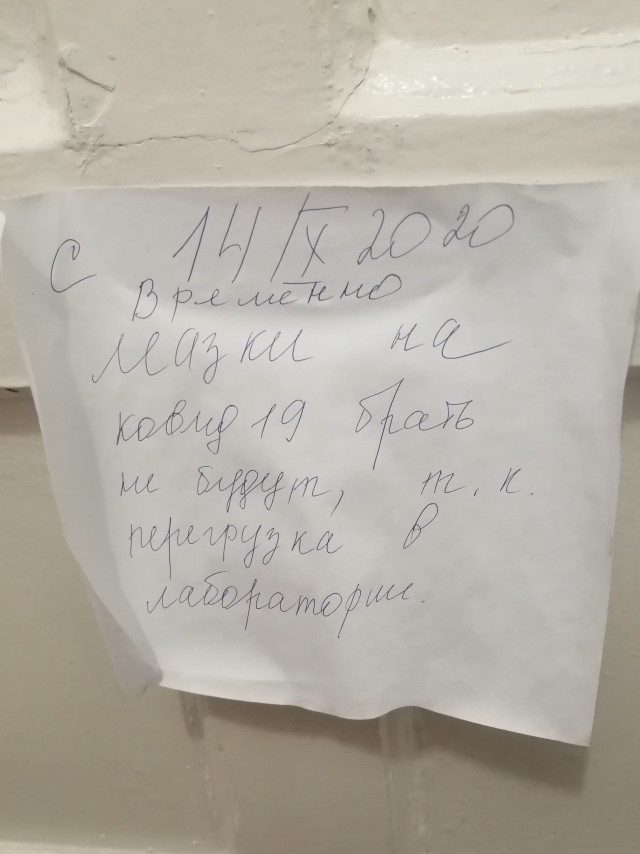 С 14/IX 2020
Временно
мазки на
ковид 19 брать
не будут, т.к.
перегрузка в
лаборатории.